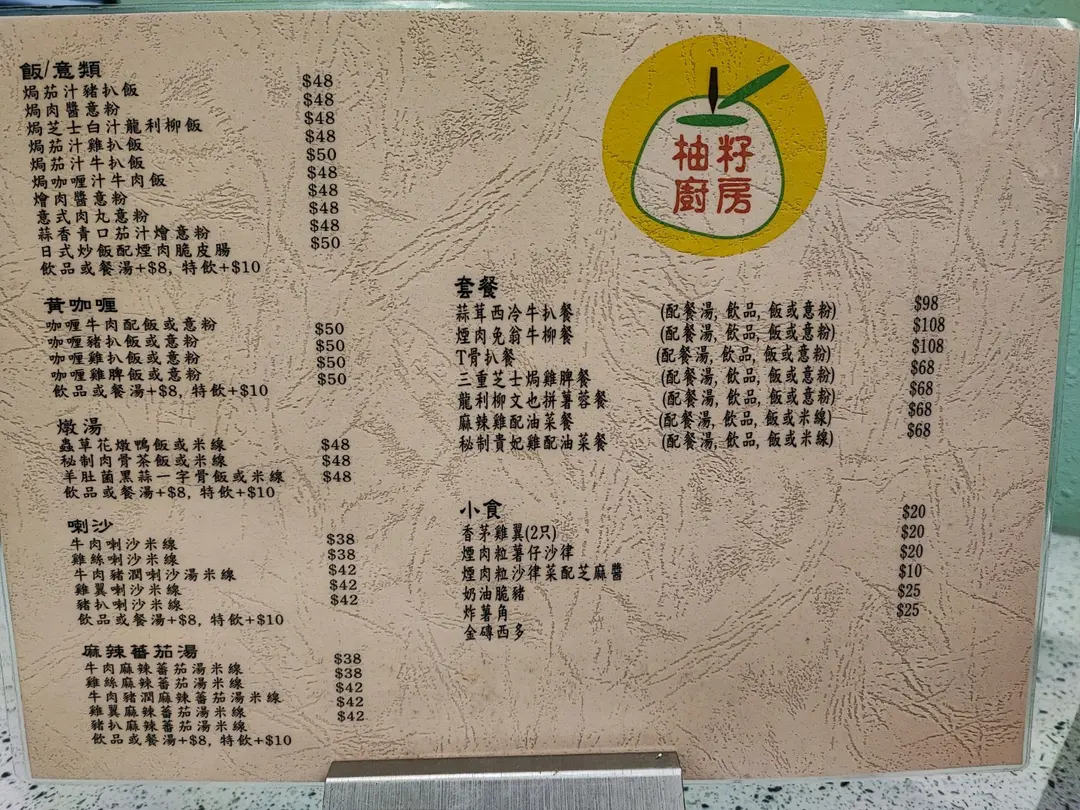 飯/意類
焗茄汁豬扒飯 $48
焗肉醬意粉 $48
焗芝士白汁龍利柳飯 $48
焗茄汁雞扒飯 $48
焗茄汁牛扒飯 $50
焗咖喱汁牛肉飯 $48
燴肉醬意粉 $48
意式肉丸意粉 $48
蒜香青口茄汁燴意粉 $48
日式炒飯配煙肉脆皮腸 $50
飲品或餐湯+$8, 特飲+$10
黃咖喱
咖喱牛肉配飯或意粉 $50
咖喱豬扒飯或意粉 $50
咖喱雞扒飯或意粉 $50
咖喱雞脾飯或意粉 $50
飲品或餐湯+$8, 特飲+$10
燉湯
蟲草花燉鴨飯或米線 $48
秘制肉骨茶飯或米線 $48
羊肚菌黑蒜一字骨飯或米線 $48
飲品或餐湯+$8, 特飲+$10
喇沙
牛肉喇沙米線 $38
雞絲喇沙米線 $38
牛肉豬潤喇沙湯米線 $42
雞翼喇沙米線 $42
豬扒喇沙米線 $42
飲品或餐湯+$8, 特飲+$10
麻辣蕃茄湯
牛肉麻辣蕃茄湯米線 $38
雞絲麻辣蕃茄湯米線 $38
牛肉豬潤麻辣蕃茄湯米線 $42
雞翼麻辣蕃茄湯米線 $42
豬扒麻辣蕃茄湯米線 $42
飲品或餐湯+$8, 特飲+$10
柚籽
廚房
套餐
蒜茸西冷牛扒餐 (配餐湯, 飲品, 飯或意粉) $98
煙肉免翁牛柳餐 (配餐湯, 飲品, 飯或意粉) $108
T骨扒餐 (配餐湯, 飲品, 飯或意粉) $108
三重芝士焗雞脾餐 (配餐湯, 飲品, 飯或意粉) $68
龍利柳文也拼薯蓉餐 (配餐湯, 飲品, 飯或意粉) $68
麻辣雞配油菜餐 (配餐湯, 飲品, 飯或米線) $68
秘制貴妃雞配油菜餐 (配餐湯, 飲品, 飯或米線) $68
小食
香茅雞翼(2只) $20
煙肉粒薯仔沙律 $20
煙肉粒沙律菜配芝麻醬 $20
奶油脆豬 $10
炸薯角 $25
金磚西多 $25